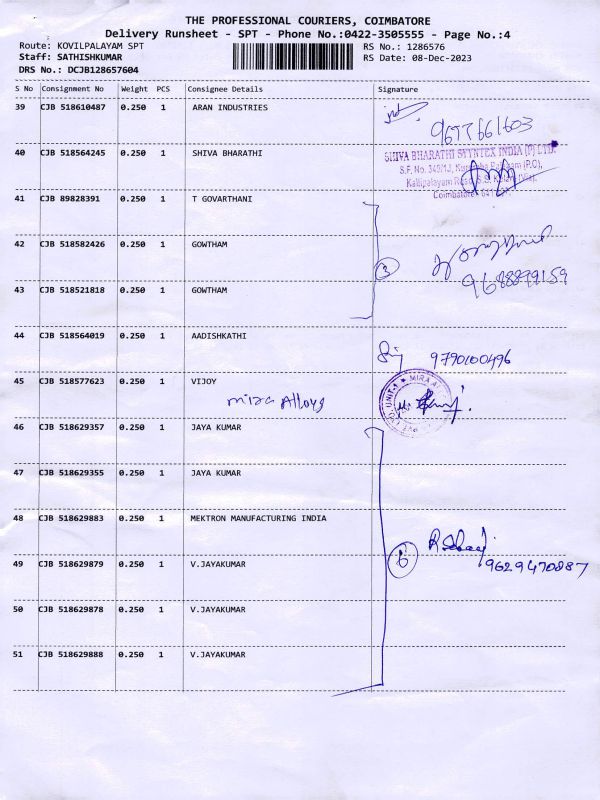 THE PROFESSIONAL COURIERS, COIMBATORE
Delivery Runsheet - SPT - Phone No.:0422-3505555 - Page No.:4
Route: KOVILPALAYAM SPT
RS No.: 1286576
Staff: SATHISHKUMAR
RS Date: 08-Dec-2023
DRS No.: DCJB128657604
S No Consignment No Weight PCS Consignee Details Signature
39 CJB 518610487 0.250 1 ARAN INDUSTRIES
9677661603
40 CJB 518564245 0.250 1 SHIVA BHARATHI
SHIVA BHARATHI SYYNTEX INDIA (P) LTD.
S.F. No. 349/1J,
Kallipalayam Road,
Coimbatore
41 CJB 89828391 0.250 1 T GOVARTHANI
42 CJB 518582426 0.250 1 GOWTHAM
3
9688899159
43 CJB 518521818 0.250 1 GOWTHAM
44 CJB 518564019 0.250 1 AADISHKATHI
9790100496
45 CJB 518577623 0.250 1 VIJOY
Mira Alloys
UNIT-1 ★ MIRA
46 CJB 518629357 0.250 1 JAYA KUMAR
47 CJB 518629355 0.250 1 JAYA KUMAR
48 CJB 518629883 0.250 1 MEKTRON MANUFACTURING INDIA
49 CJB 518629879 0.250 1 V.JAYAKUMAR
6
9629470887
50 CJB 518629878 0.250 1 V.JAYAKUMAR
51 CJB 518629888 0.250 1 V.JAYAKUMAR